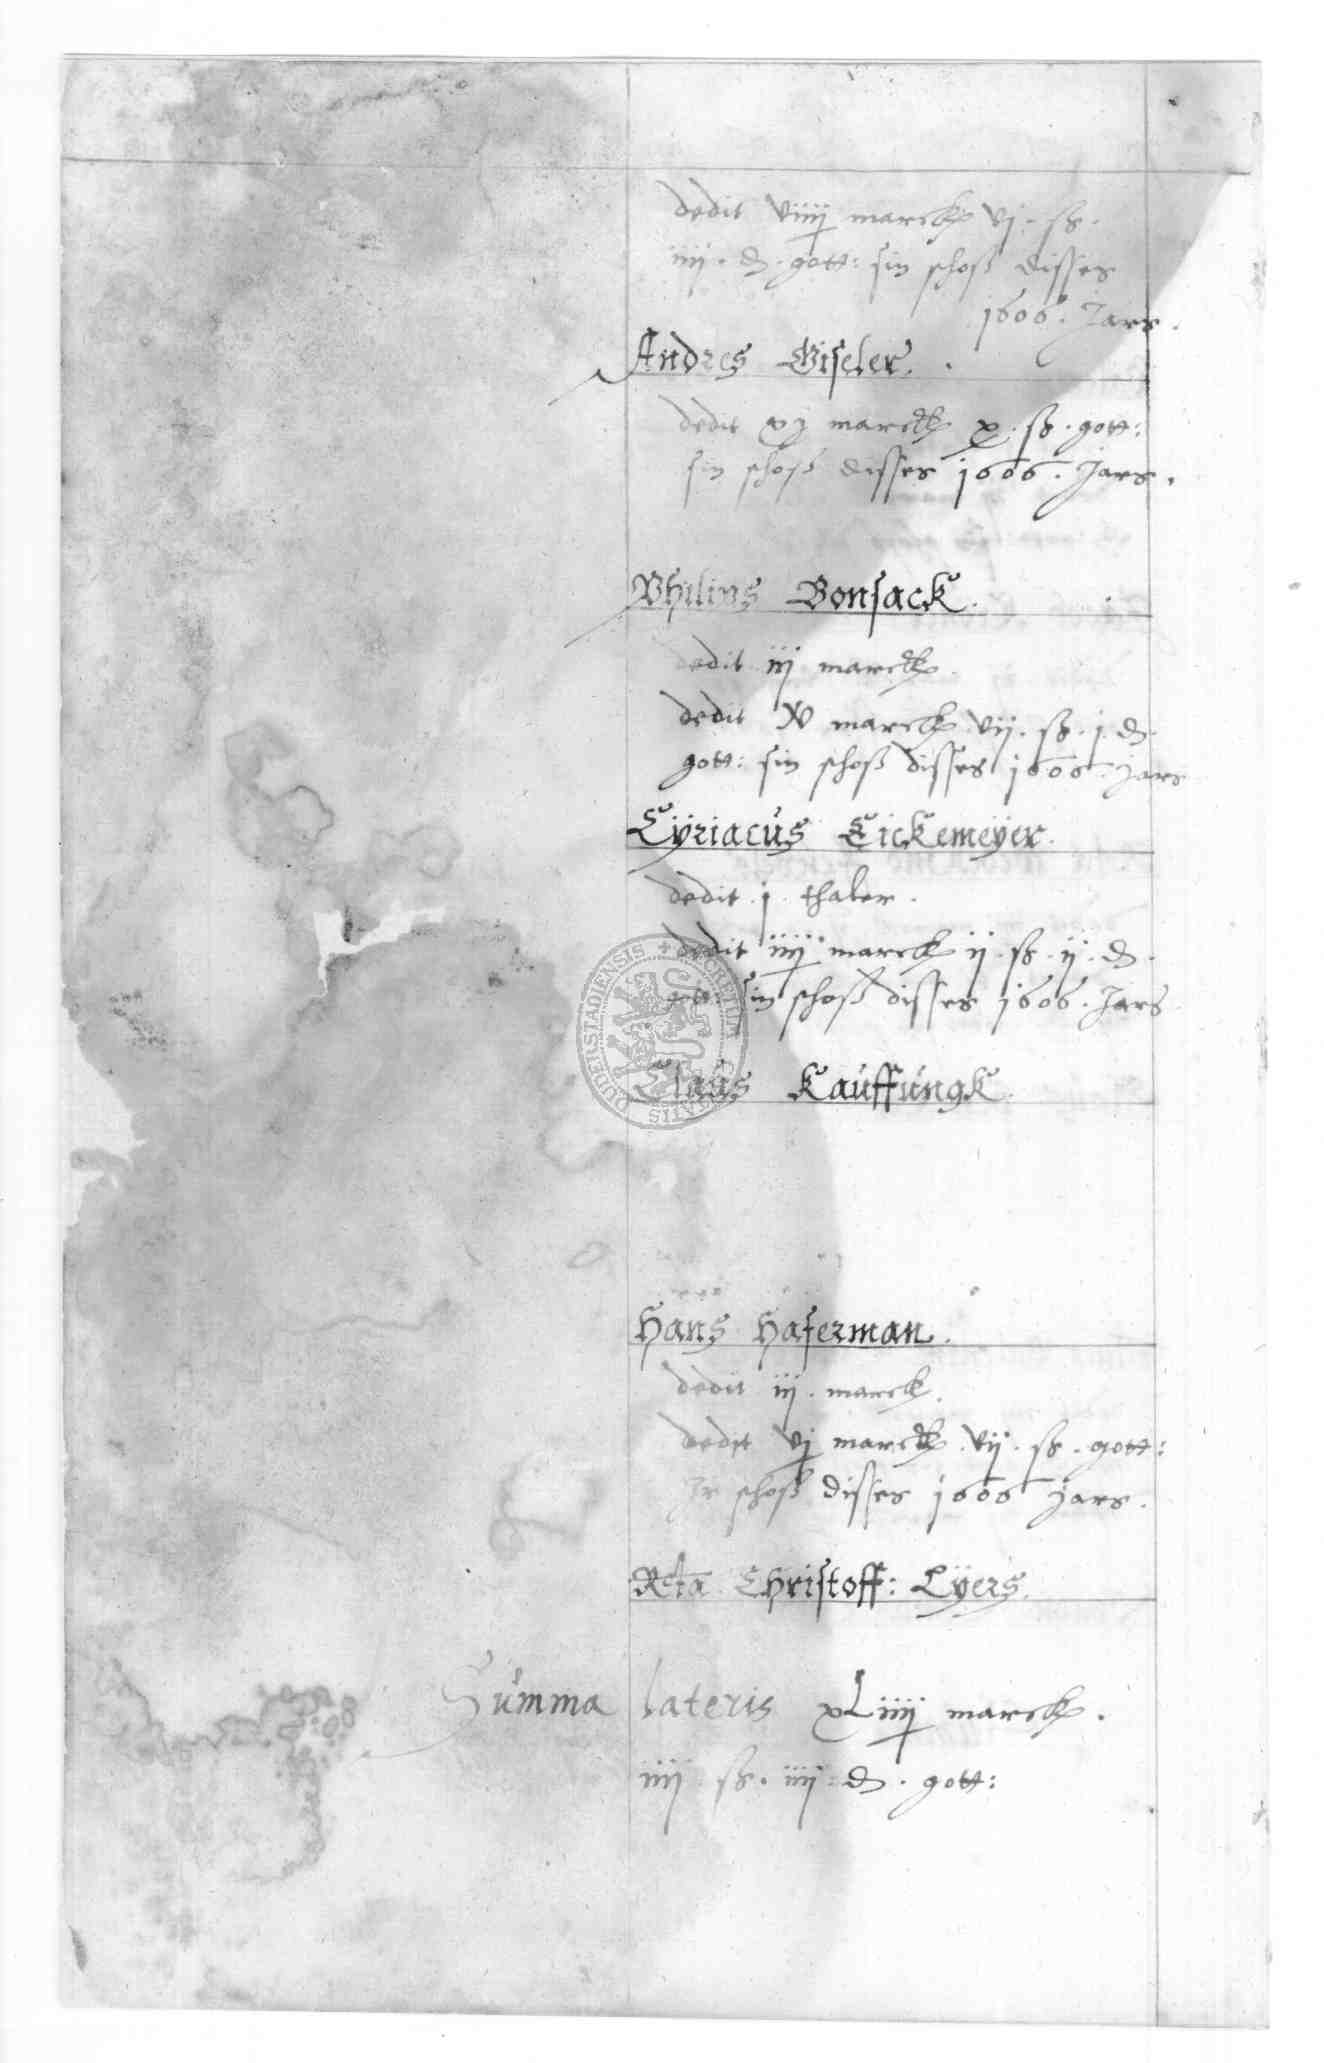 dedit viiij marck vj . ß .
iiij . d . gott: sin schoß disses
1606 . Jars .
Andres Giseler .
dedit xj marck x . ß . gott:
sin schoß disses 1606 . Jars .
Philips Bonsack .
dedit iij marck
dedit xv marck vij . ß . j . d .
gott: sin schoß disses 1606 . jars
Cÿriacus Eickemeÿer .
dedit . j . thaler .
dedit iiij marck ij . ß . ij . d .
gott: sin schoß disses 1606 . Jars
Claus Kauffungk .
Hans Haferman .
dedit iij . marck .
dedit vj marck . vij . ß . gott:
Jr schoß disses 1606 jars .
Rcta Christoff: Lÿers .
Summa lateris xLiiij marck .
iiij . ß . iiij . d . gott:
SECRETUM CIVITATIS DUDERSTADIENSIS